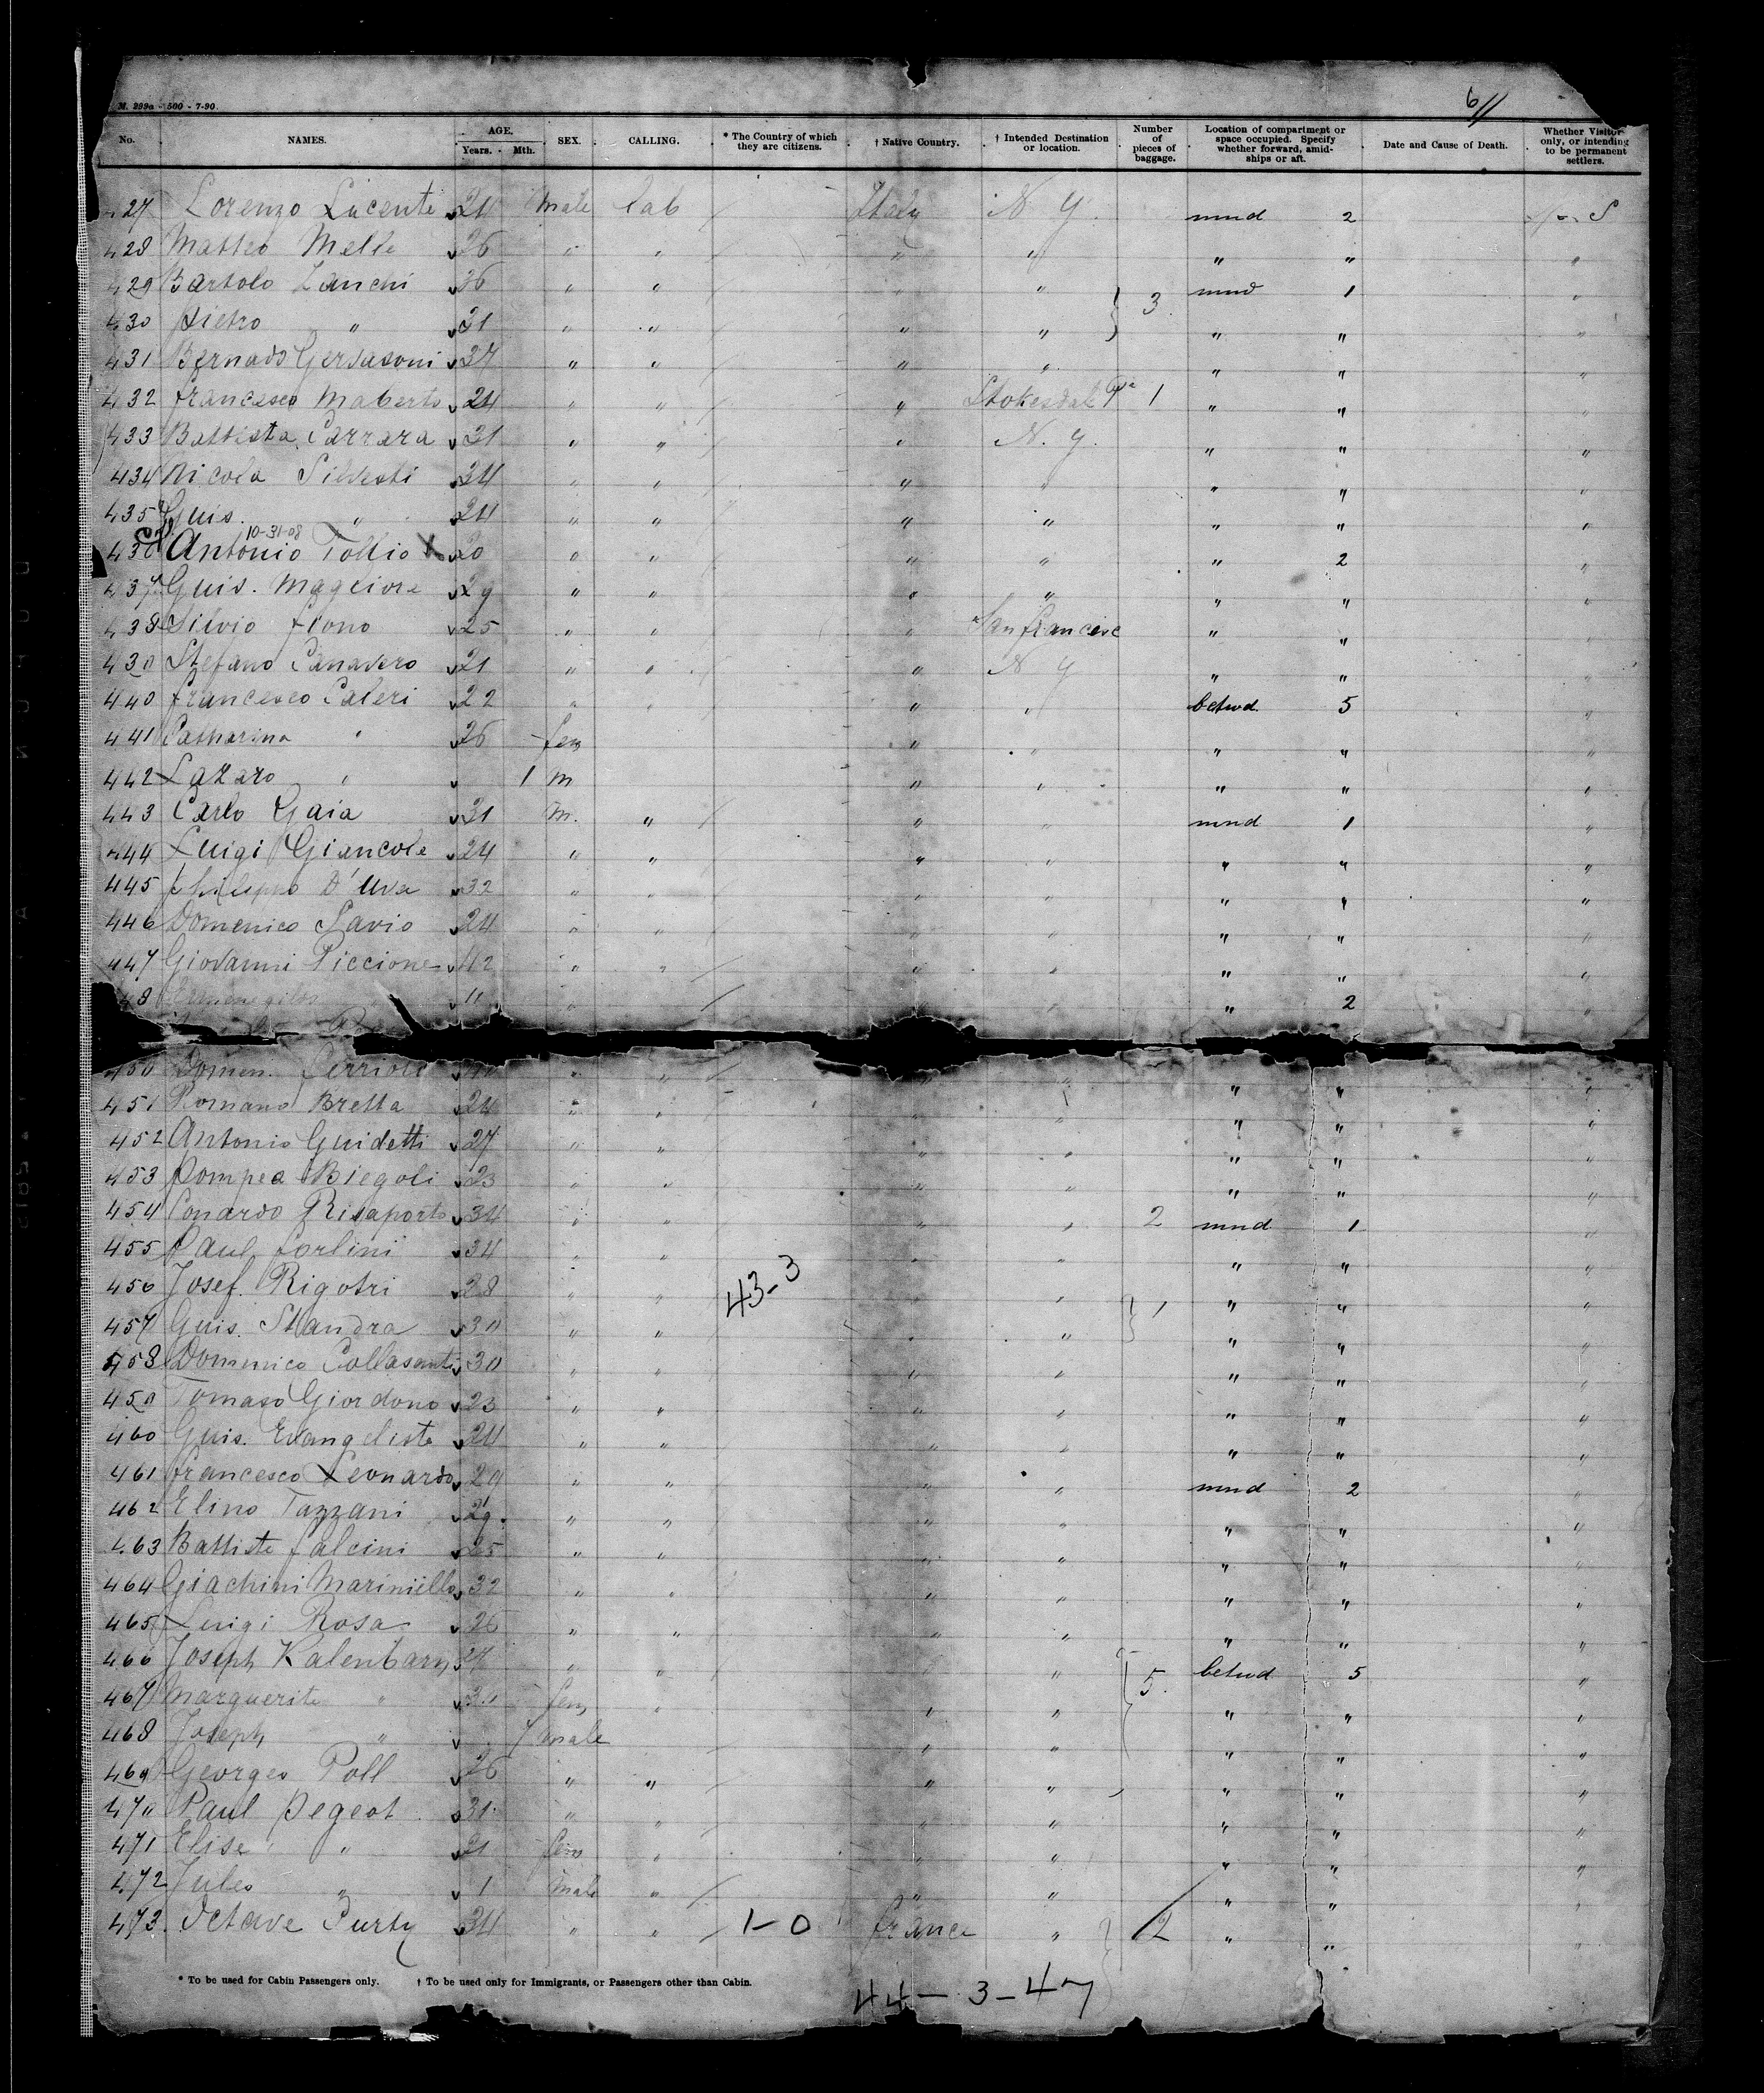 M. 299a - 500 - 7-90.
6//
No. NAMES. AGE. Years. Mth. SEX. CALLING. * The Country of which they are citizens. † Native Country. † Intended Destination or location. Number of pieces of baggage. Location of compartment or space occupied. Specify whether forward, amidships or aft. Date and Cause of Death. Whether Visitor only, or intending to be permanent settlers.
427 Lorenzo Lucente 24 Male lab / Italy N. Y. mnd 2 S
428 Matteo Melle 26 " " / " " " " "
429 Bartolo Zanchi 36 " " / " " } 3 mnd 1 "
430 Pietro " 31 " " / " " " " "
431 Bernado Gervasoni 37 " " / " " " " "
432 Francesco Maberto 24 " " / " Stokesdale Pa 1 " " "
433 Battista Carrara 31 " " / " N. Y. " " "
434 Nicola Silvestri 34 " " / " " " " "
435 Guis. " 24 " " " " " " "
10-31-08
436 Antonio Tollio X 20 " " " " " 2 "
437 Guis. Maggiore 29 " " " " " " "
438 Silvio Fiono 25 " " " San Francisc " " "
439 Stefano Canavero 21 " " " N Y " " "
440 Francesco Caleri 22 " " " " betwd. 5 "
441 Catharina " 26 fem " " " " "
442 Lazaro " 1 m " " " " "
443 Carlo Gaia 31 m. " / " " mnd 1 "
444 Luigi Giancole 24 " " / " " " " "
445 Philippo D'Uva 32 " " / " " " " "
446 Domenico Savio 24 " " / " " " " "
447 Giovanni Piccione 42 " " / " " " " "
48 11 " / " " " 2 "
450 Domen. " " / " " " " "
451 Romano Bretta 24 " " " " " " "
452 Antonio Guidetti 27 " " " " " " "
453 Pompea Biegoli 23 " " " " " " "
454 Conardo Risaporto 34 " " " " 2 mnd 1 "
455 Paul Forlini 34 " " " " " " "
456 Josef. Rigotri 28 " " 43-3 " " } 1 " " "
457 Guis. Standra 30 " " " " " " "
458 Domenico Collasanti 30 " " " " " " "
459 Tomaso Giordono 23 " " " " " " "
460 Guis. Evangeliste 24 " " " " " " "
461 Francesco Leonardo 29 " " " " mnd 2 "
462 Elino Tazzani 29 " " " " " " "
463 Battiste Falcini 25 " " " " " " "
464 Giachini Mariniello 32 " " " " " " "
465 Luigi Rosa 26 " " " " " " "
466 Joseph Kalenbarn 27 " " " " { 5. betwd 5 "
467 Marguerite " fem " " " " " "
468 Joseph " 7 male " " " " "
469 Georges Poll 26 " " / " " " " "
470 Paul Pegeot 31 " " " " " " "
471 Elise " 21 fem " " " " " "
472 Jules " 1 Male " / " " " " "
473. Octave Purty 34 " " / 1-0 France " } 2 " " "
* To be used for Cabin Passengers only. † To be used only for Immigrants, or Passengers other than Cabin.
44-3-47